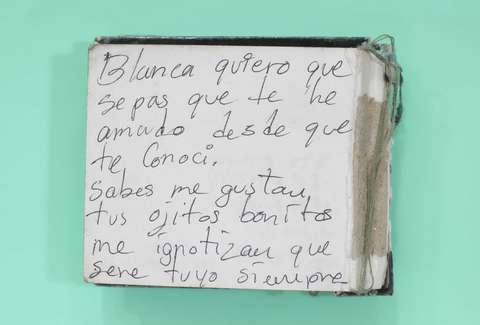 Blanca quiero que
sepas que te he
amado desde que
te Conoci.
Sabes me gustan
tus ojitos bonitos
me ignotizan que
sere tuyo siempre